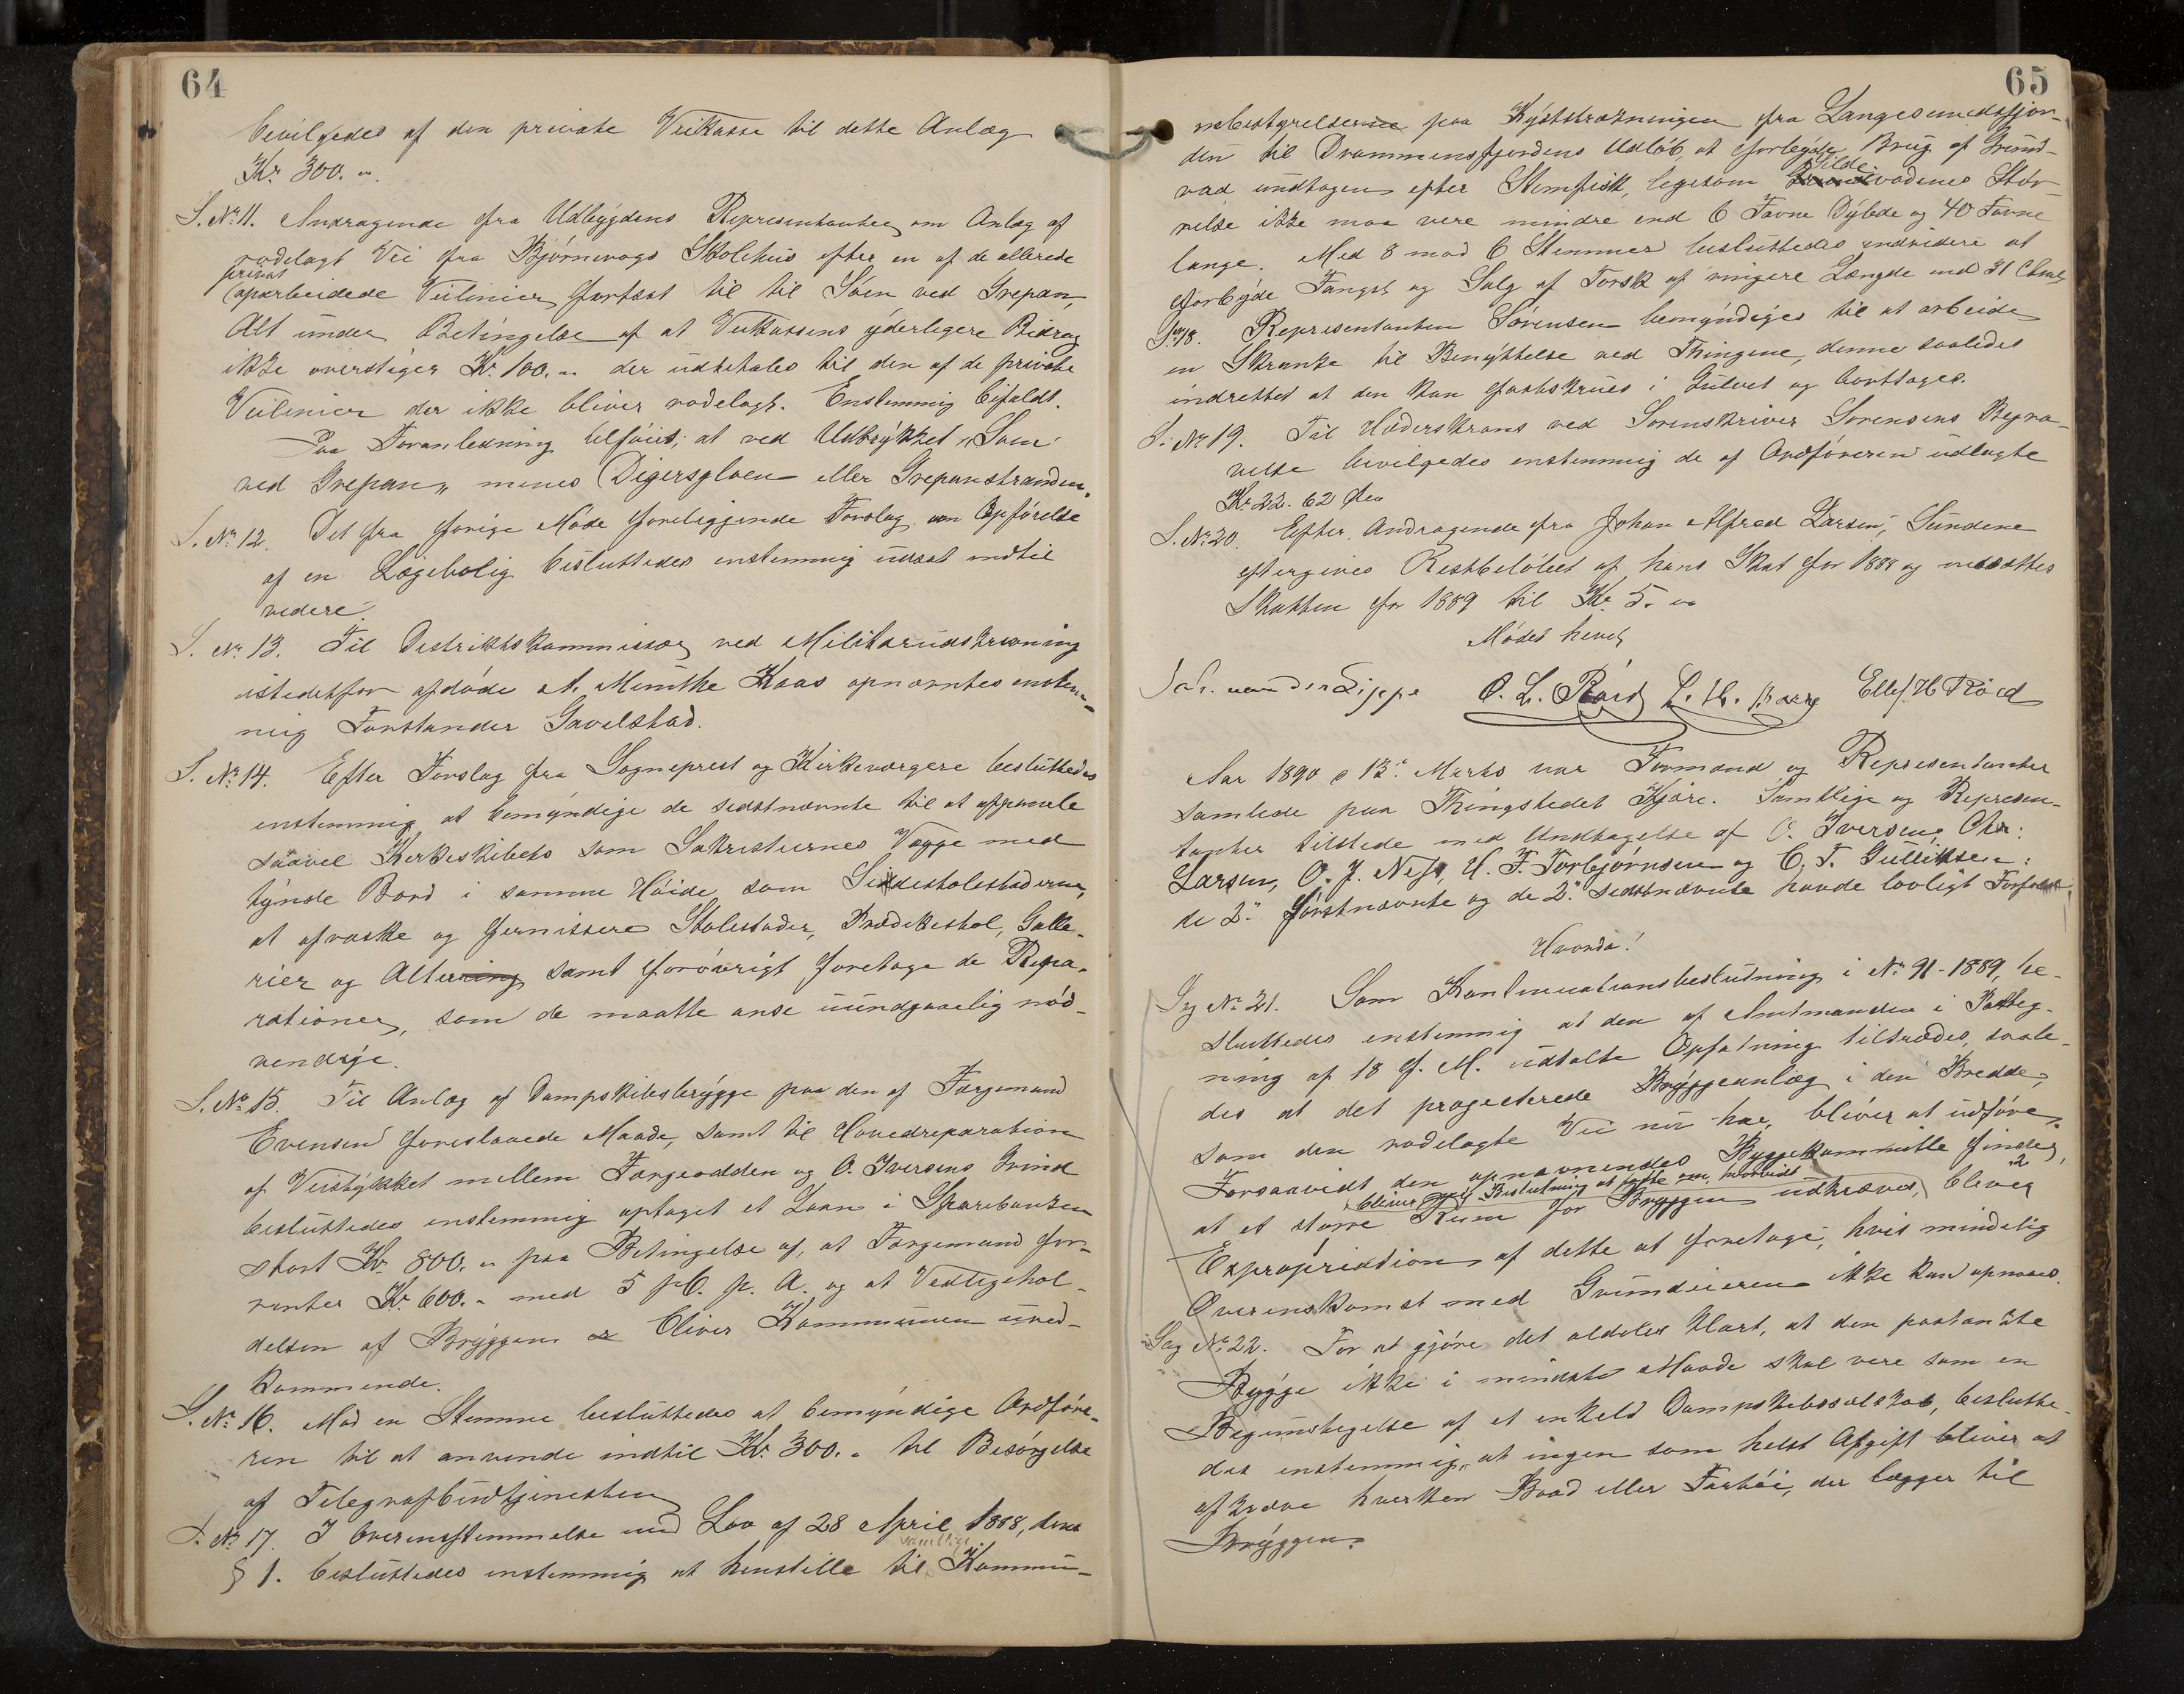 64
bevilgedes af den private Veikasse til dette Anlæg
Kr. 300. "
S. No 11. Andragende fra Udbygdens Repræsentanter om Anlæg af
rodelagt Vei fra Bjørnevogs Skolehus efter en af de allerede
privat
oparbeidede Veilinier fortsat til til Søen ved Grepan,
Alt under Betingelse af at Veikassens yderligere Bidrag
ikke overstiger Kr. 100. " der udbetales til den af de private
Veilinier der ikke bliver rodelagt. Enstemmig bifaldt.
Paa Foranledning tilføiet; at ved Udtrykket "Søen
ved Grepan" menes Digersgloen eller Grepanstranden.
S. No 12. Det fra forrige Møde foreliggende Forslag om Opførelse
af en Lægebolig besluttedes enstemmig udsat indtil
videre.
S. No 13. Til Distriktskommissær ved Militærudskrivning
istedetfor afdøde A. Munthe Kaas opnævntes enstem-
mig Forstander Gavelstad.
S. No 14. Efter Forslag fra Sogneprest og Kirkeværgere besluttedes
enstemmig at bemyndige de sidstnævnte til at afpanele
saavel Kirkeskibets som Sakristiernes Vægge med
tynde Bord i samme Høide som Sidestolestaderne,
at afvaske og fernissere Stolestader, Prædikestol, Galle-
rier og Altering samt forøvrigt foretage de Repa-
rationer, som de maatte anse uundgaaelig nød-
vendige.
S. No 15. Til Anlæg af Dampskibsbrygge paa den af Færgemand
Evensen foreslaaede Maade, samt til Hovedreparation
af Veistykket mellem Færgeodden og O. Iversens Grind
besluttedes enstemmig optaget et Laan i Sparebanken
stort Kr. 800. " paa Betingelse af, at Færgemand for-
renter Kr. 600. " med 5 pC. p. A. og at Vedligehol-
delsen af Bryggen bliver Kommunen uved-
kommende.
S. No 16. Mod en Stemme besluttedes at bemyndige Ordføre-
ren til at anvende indtil Kr. 300. " til Besørgelse
af Telegrafbudtjenesten
S. No 17. I Overensstemmelse med Lov af 28 April 1888, dens
samtlige
§ 1. besluttedes enstemmig at henstille til Kommu-
65
nebestyrelserne paa Kyststrækningen fra Langesundsfjor-
den til Drammensfjordens Udløb, at forbyde Brug af Grund-
Silde
vad undtagen efter Stimfisk, ligesom Grundvadenes Stør-
relse ikke maa være mindre end 6 Favne Dybde og 40 Favne
lange. Med 8 mod 6 Stemmer besluttedes endvidere at
forbyde Fangst og Salg af Torsk af ringere Længde end 31 Ctmt.
S. No 18. Repræsentanten Sørensen bemyndiges til at arbeide
en Skranke til Benyttelse ved Thingene, denne saaledes
indrettet at den kan fastskrues i Gulvet og borttages.
S. No 19. Til Hæderskrans ved Sorenskriver Sørensens Begra-
velse bevilgedes enstemmig de af Ordføreren udlagte
Kr. 22. 62 Øre
S. No 20. Efter Andragende fra Johan Alfred Larsen, Sundene
eftergives Restbeløbet af hans Skat for 1888 og nedsættes
Skatten for 1889 til Kr. 5. "
Mødet hævet
Joh. van der Lippe O. L. Røed L. H. Ellef H Röed
Aar 1890 d 13de Marts var Formænd og Repræsentanter
samlede paa Thingstedet Kjøre. Samtlige og Repræsen-
tanter tilstede med Undtagelse af O. Iversen, Chr.
Larsen, O. J. Ness, H. F. Torbjørnsen og C. F. Gulliksen:
de 2de førstnævnte og de 2de sidstnævnte havde lovligt Forfald.
Hvorda!
Sag No 21. Som Kontinuationsbeslutning i No 91 - 1889, be-
sluttedes enstemmig at den af Amtmanden i Paateg-
ning af 18 f. M. udtalte Opfatning tiltrædes, saale-
des at det projecterede Bryggeanlæg i den Bredde,
som den rodelagte Vei nu har, bliver at udføre.
Forsaavidt den opnævnendes Byggekommitte finder,
bliver Beslutning at fatte om, hvorvidt
at et større Rum for Bryggen udkræves, bliver
Expropriation af dette at foretage, hvis mindelig
Overenskomst med Grundeieren ikke kan opnaaes.
Sag No 22. For at gjøre det aldeles klart, at den paatænkte
Brygge ikke i mindste Maade skal være som en
Begunstigelse af et enkeld Dampskibsselskab, beslutte-
des enstemmig, at ingen som helst Afgift bliver at
afkræve hverken Baad eller Fartøi, der lægger til
Bryggen.